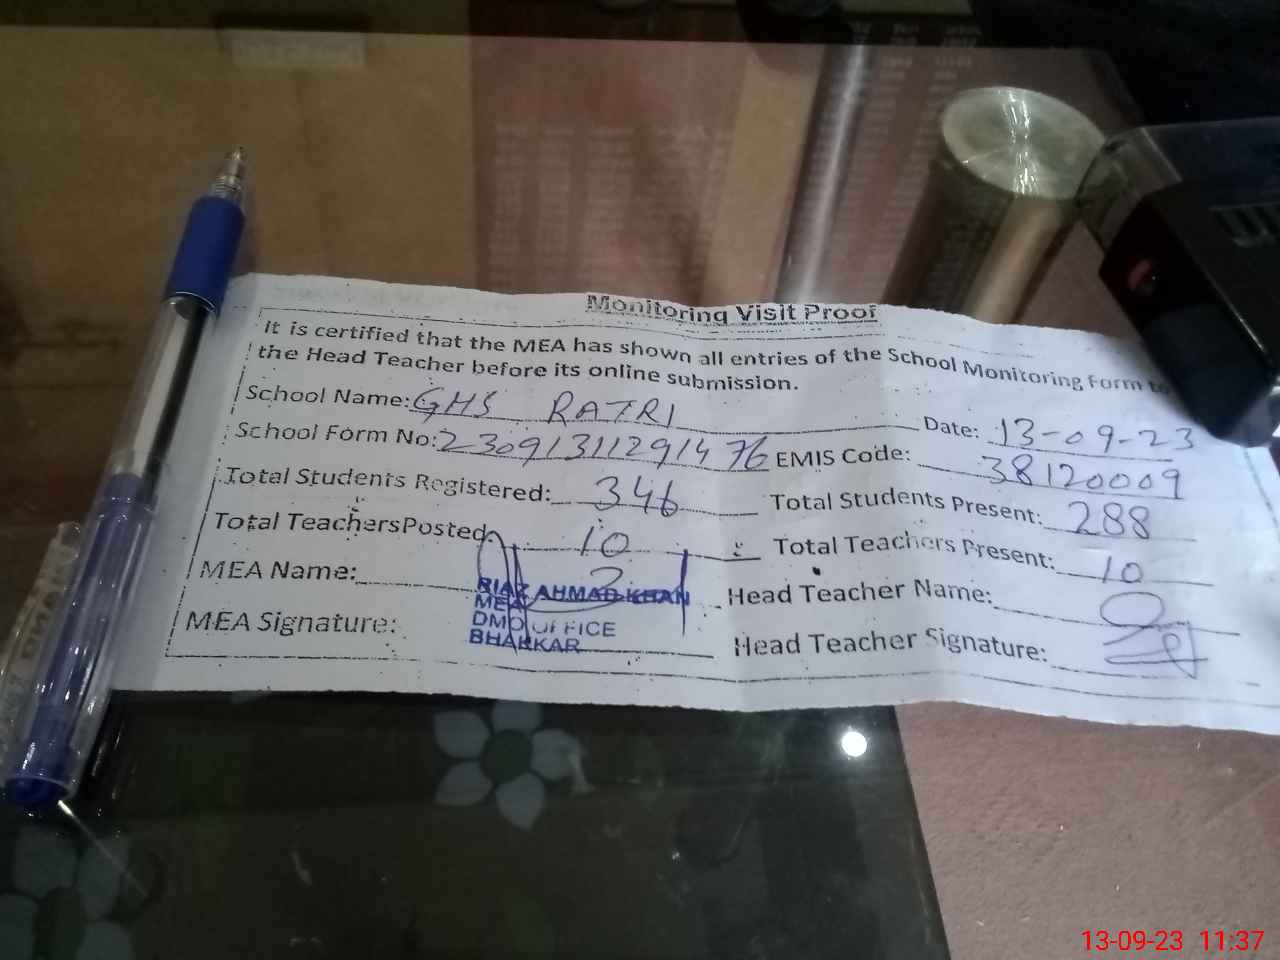 Monitoring Visit Proof
It is certified that the MEA has shown all entries of the School Monitoring Form to
the Head Teacher before its online submission.
School Name: GHS RATRI Date: 13-09-23
School Form No: 23091311291476 EMIS Code: 38120009
Total Students Registered: 346 Total Students Present: 288
Total Teachers Posted 10 Total Teachers Present: 10
MEA Name: Head Teacher Name:
RIAZ AHMAD KHAN
MEA
DMO OFFICE
BHAKKAR
MEA Signature: Head Teacher Signature:
13-09-23 11:37